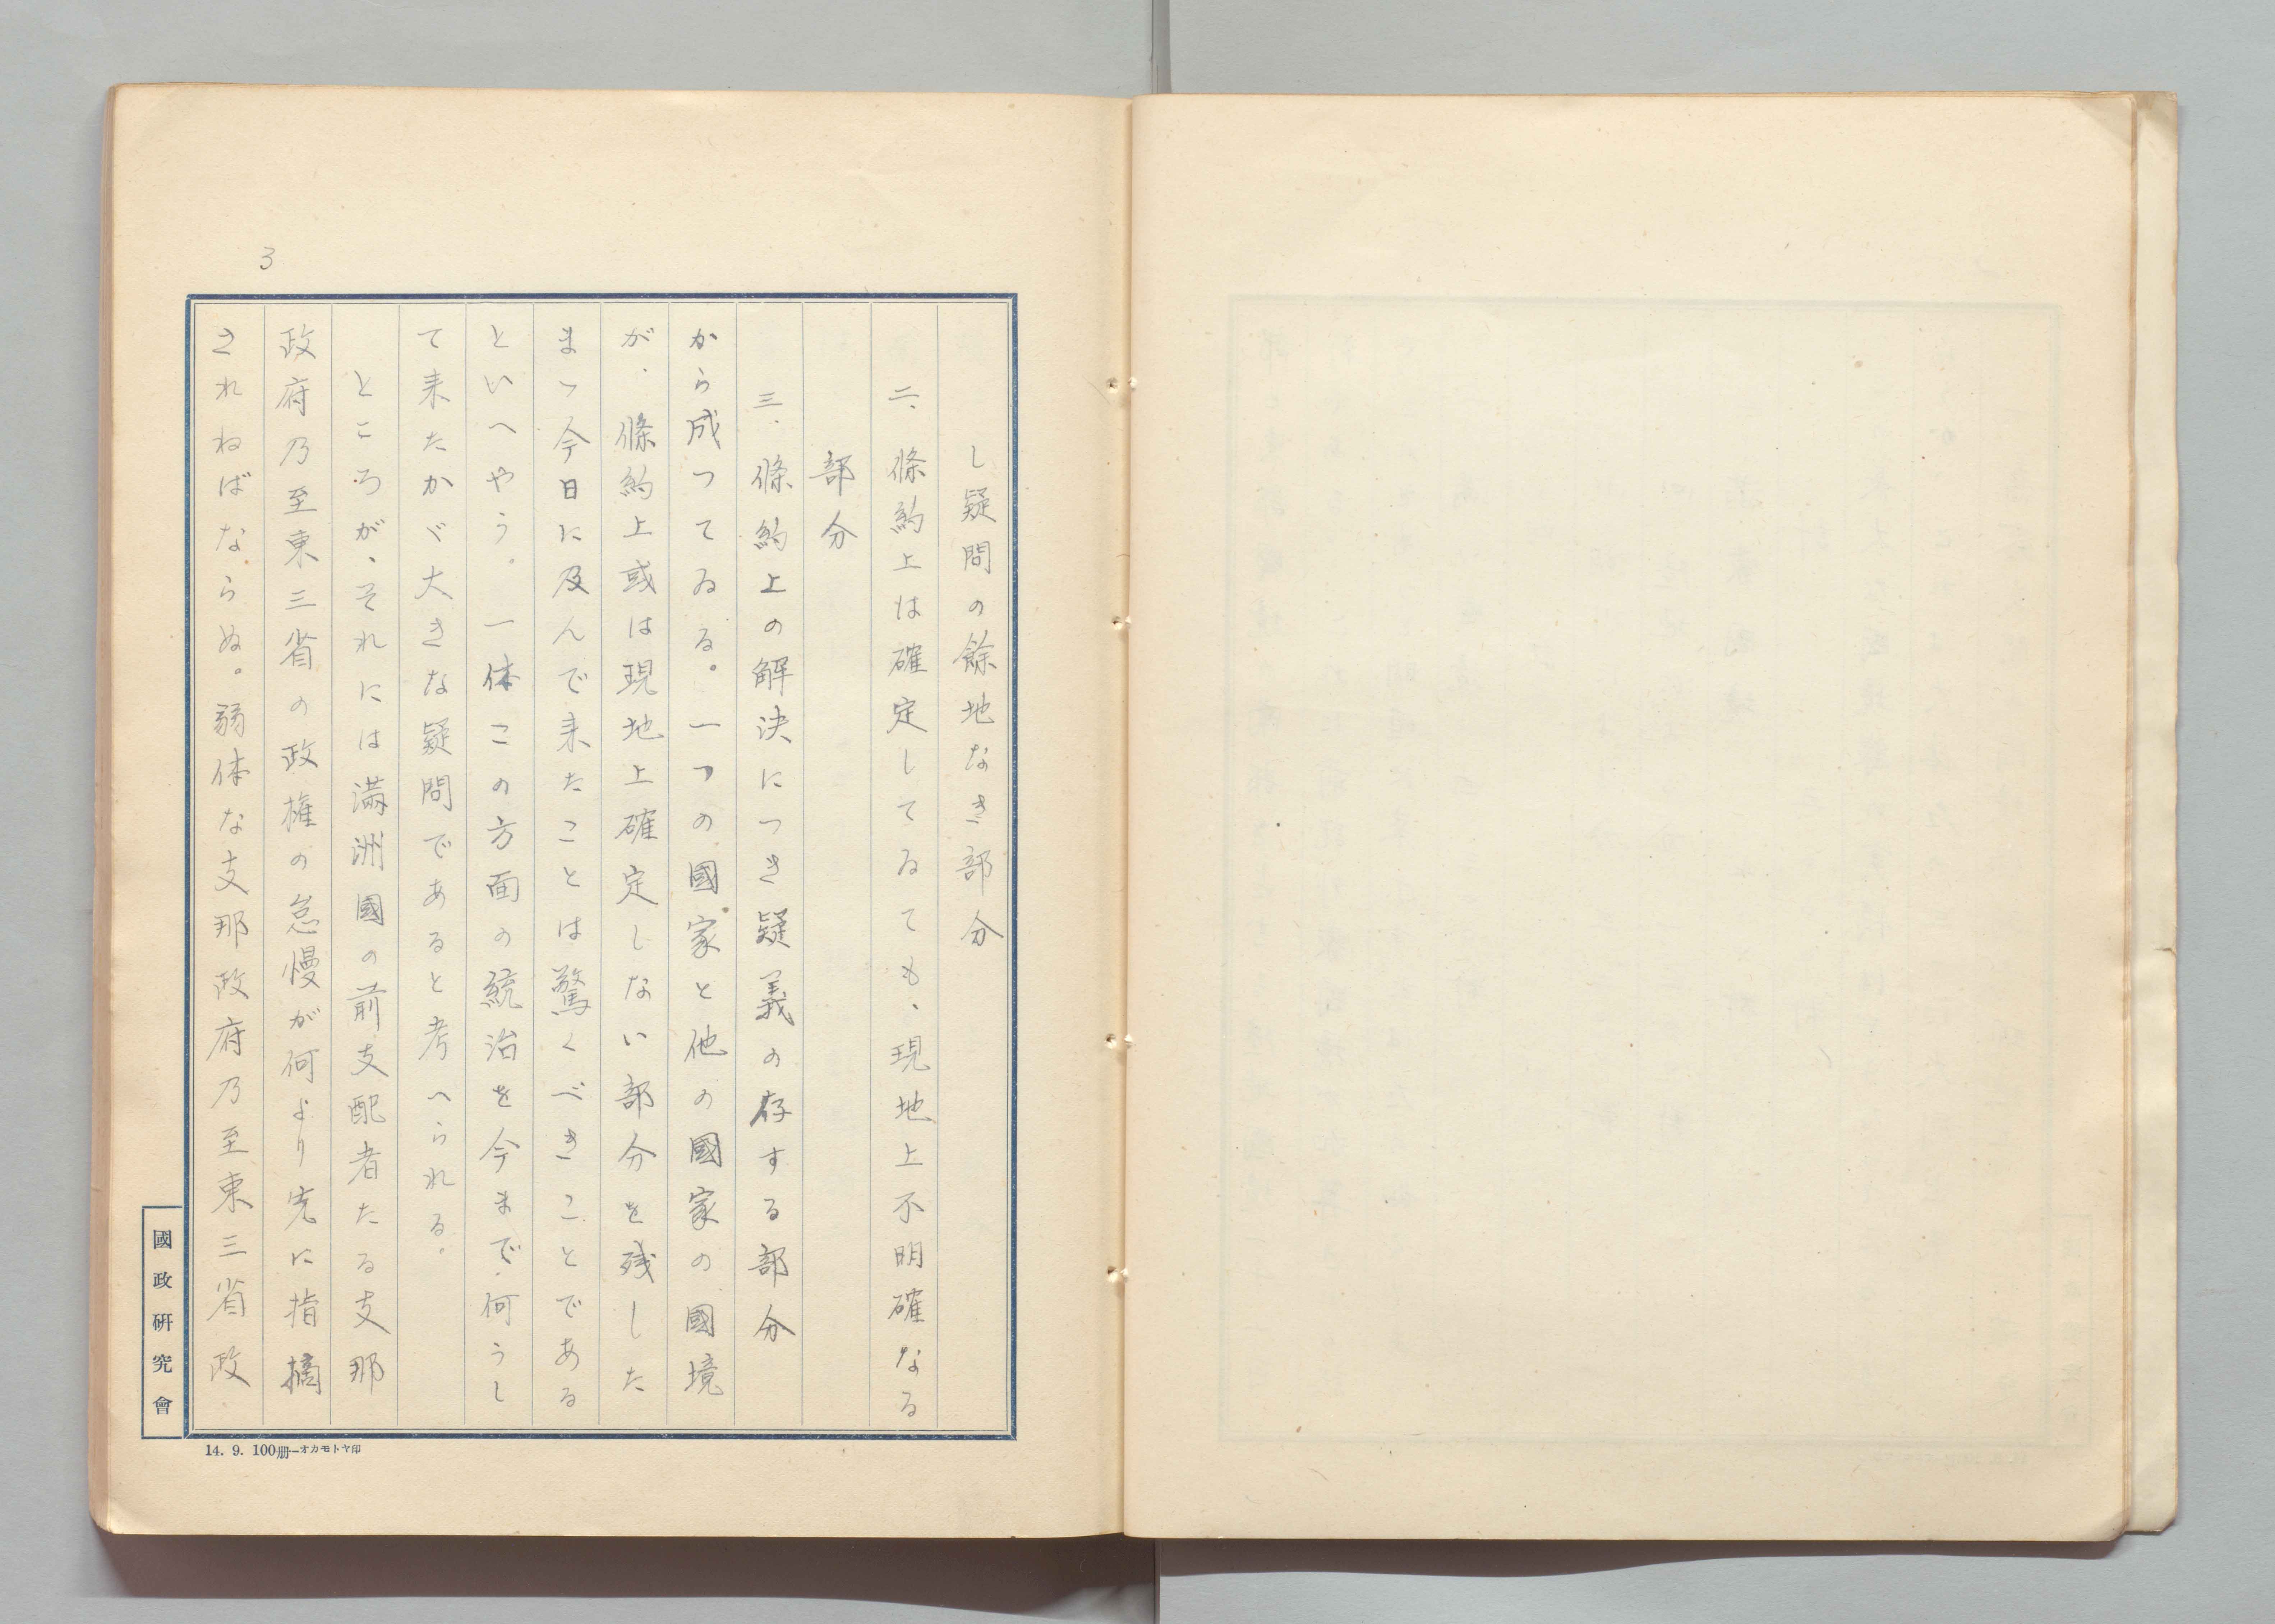 3
し疑問の餘地なき部分
二、條約上は確定してゐても、現地上不明確なる
部分
三、條約上の解決につき疑義の存する部分
から成つてゐる。一つの國家と他の國家の國境
が、條約上或は現地上確定しない部分を残した
まゝ今日に及んで来たことは驚くべきことである
といへやう。一体この方面の統治を今まで何うし
て来たかゞ大きな疑問であると考へられる。
ところが、それには満洲國の前支配者たる支那
政府乃至東三省の政権の怠慢が何より先に指摘
されねばならぬ。弱体な支那政府乃至東三省政
國政研究會
14. 9. 100册—オカモトヤ印